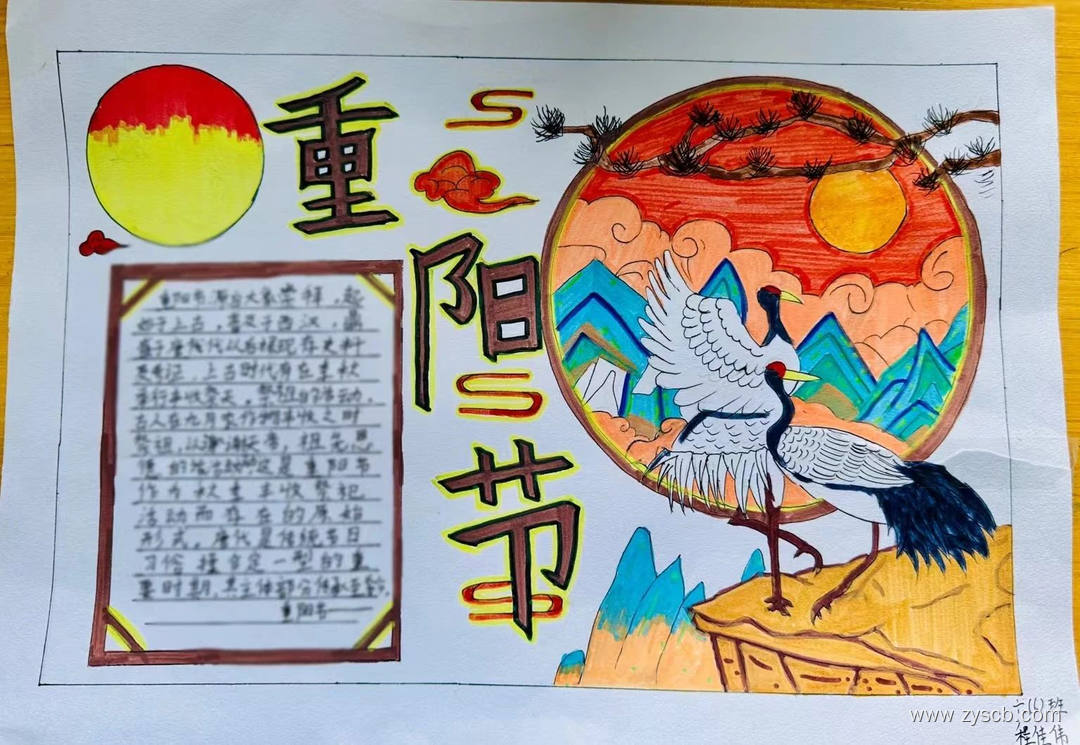 重
阳
节
重阳节源自天象崇拜，起
始于上古，普及于西汉，鼎
盛于唐代以后据现存史料
及考证，上古时代有在季秋
举行丰收祭天、祭祖的活动，
古人在九月农作物丰收之时
祭祖，以谢天帝，祖先恩
德的活动这是重阳节
作为秋季丰收祭祀
活动而存在的原始
形式，唐代是传统节日
习俗揉合定型的重
要时期，其主体部分传承至今。
重阳节
六(1)班
www.zyscb.com
程佳伟